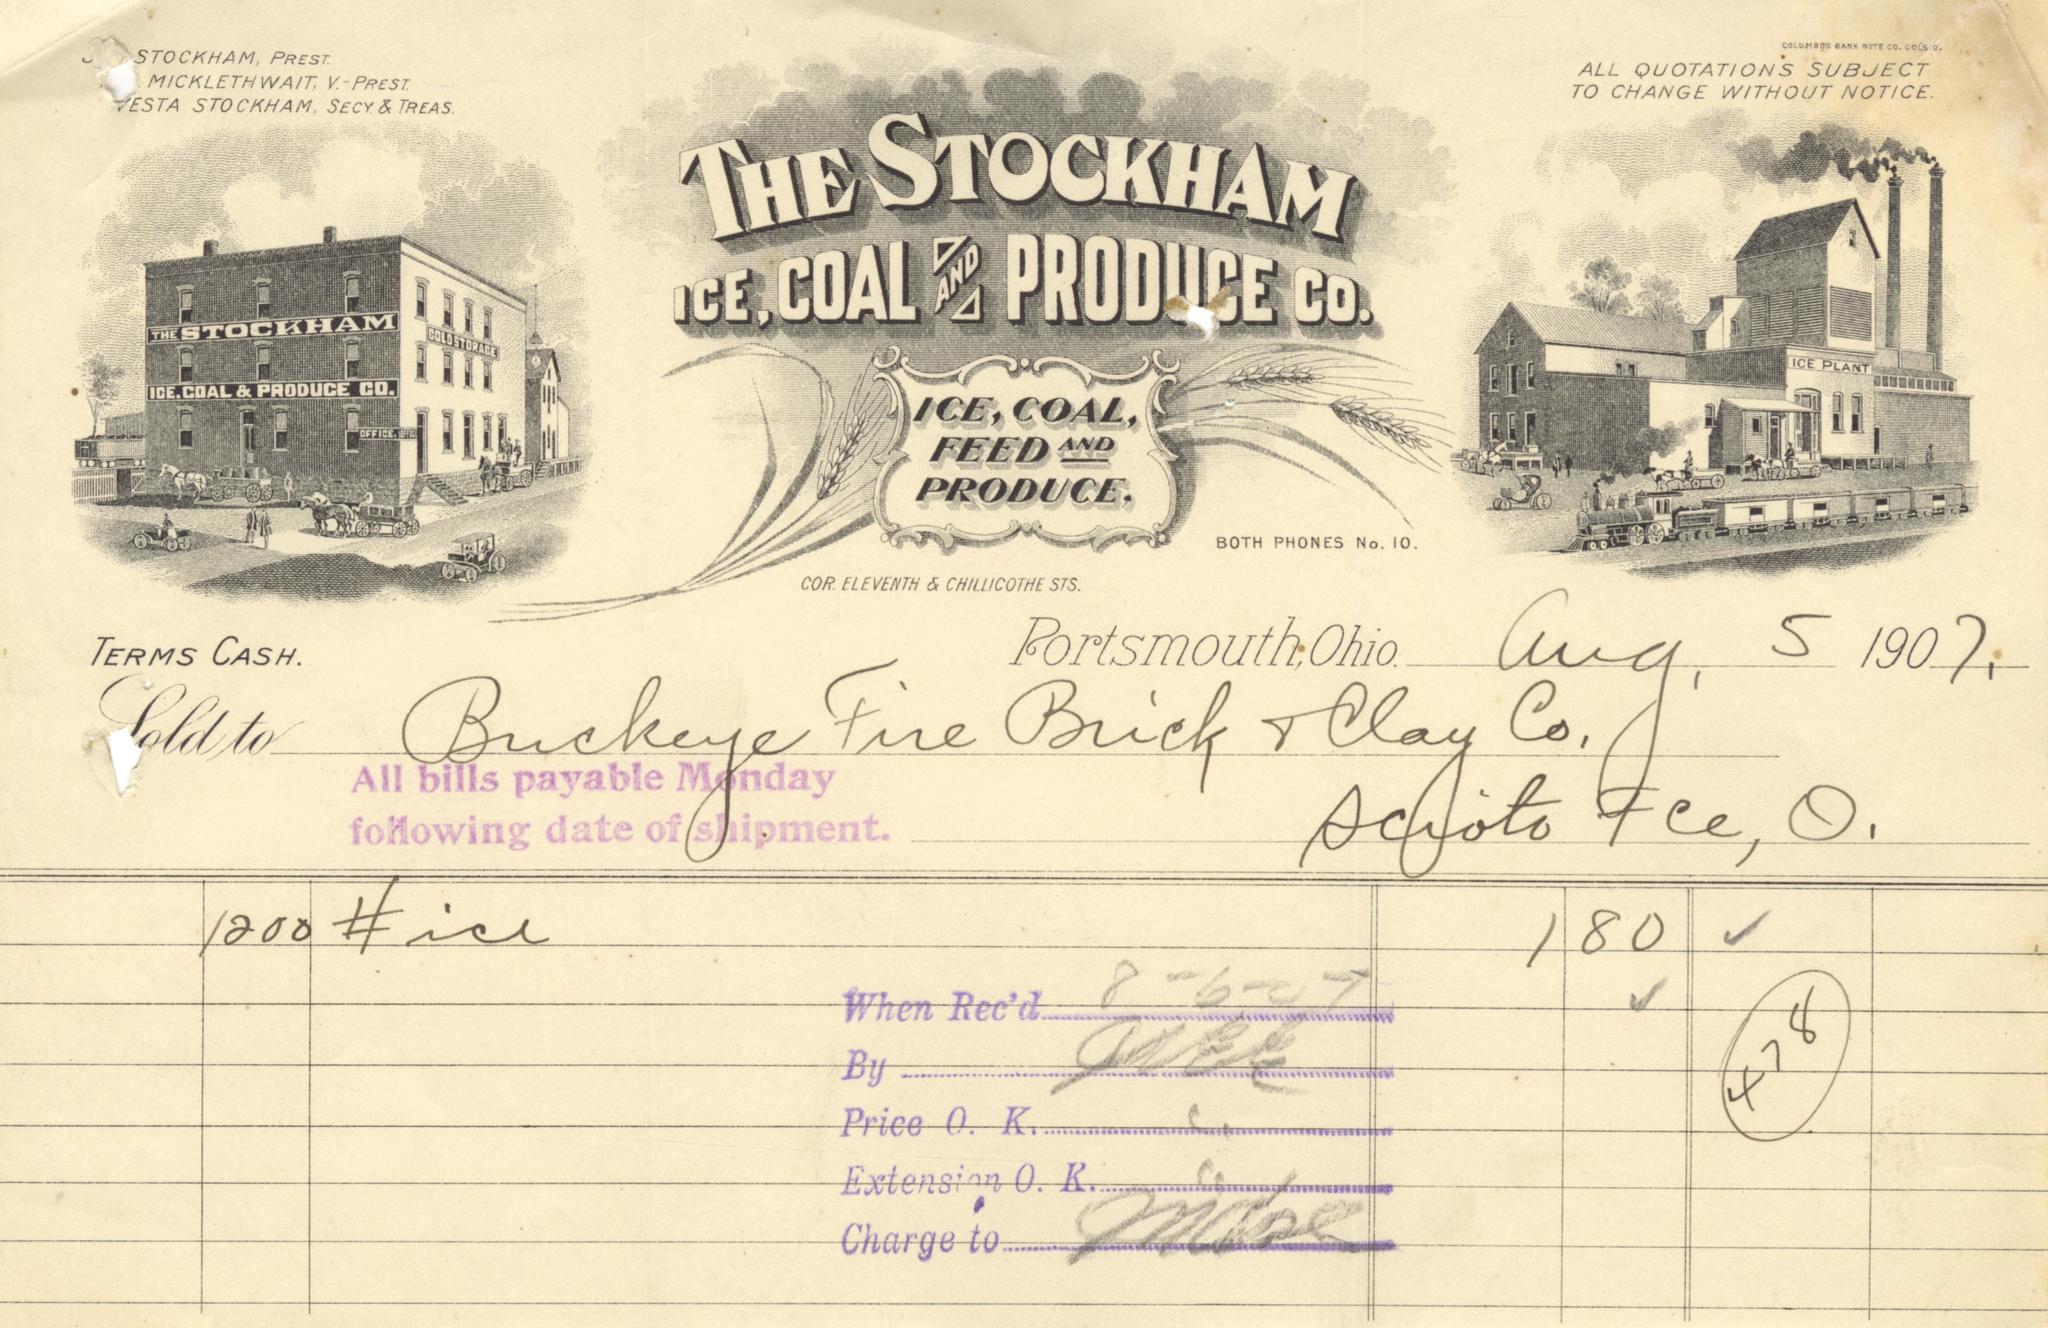 STOCKHAM, PREST.
MICKLETHWAIT, V.-PREST.
VESTA STOCKHAM, SECY. & TREAS.
COLUMBUS BANK NOTE CO. COLS. O.
ALL QUOTATIONS SUBJECT
TO CHANGE WITHOUT NOTICE.
THE STOCKHAM
ICE, COAL AND PRODUCE CO.
THE STOCKHAM
COLD STORAGE
ICE, COAL & PRODUCE CO.
OFFICE,
ICE PLANT
ICE, COAL,
FEED AND
PRODUCE.
BOTH PHONES No. 10.
COR. ELEVENTH & CHILLICOTHE STS.
TERMS CASH.
Portsmouth, Ohio. Aug. 5 1907.
Sold to Buckeye Fire Brick & Clay Co.
All bills payable Monday
following date of shipment.
Scioto Fce, O.
1200 # ice 1 80 ✓
When Rec'd 8-6-07 ✓
By
Price O. K.
Extension O. K.
Charge to
478